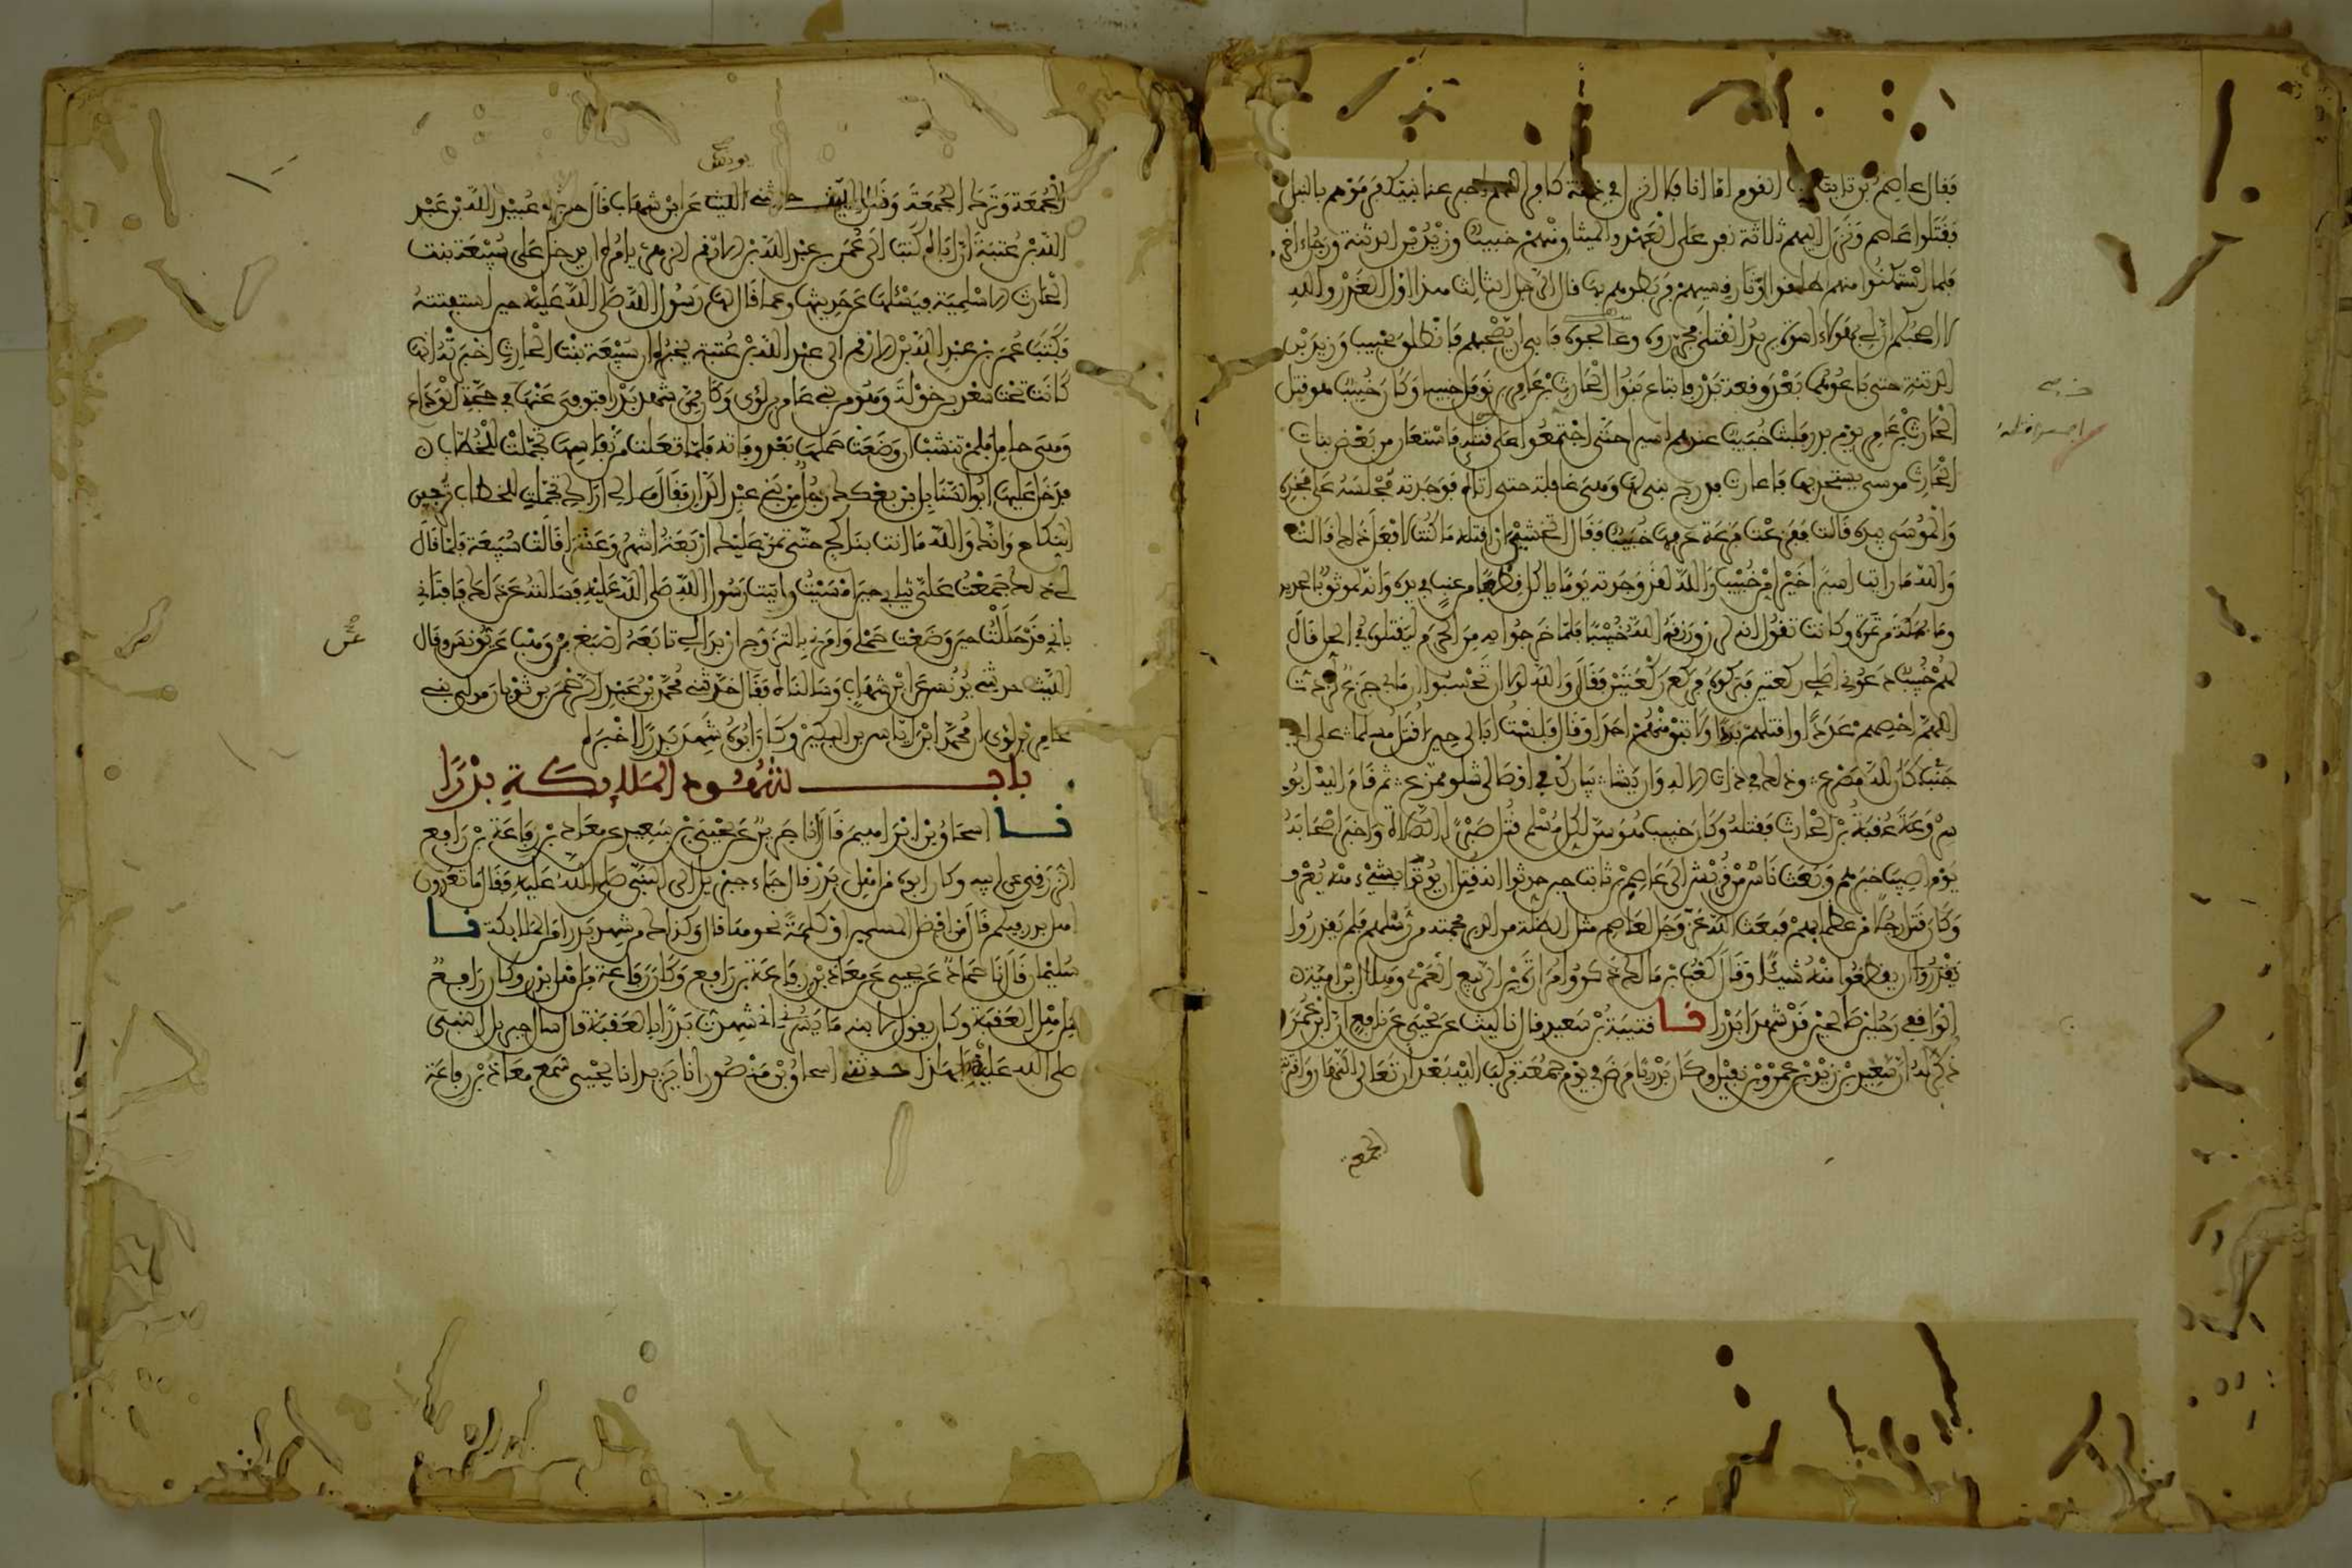 فقال عاصم بن ثابت ايها القوم اما انا فلا انزل في ذمة كافر اللهم اخبر عنا نبيك فرموهم بالنبل
فقتلوا عاصم ونزل اليهم ثلاثة نفر على العهد والميثاق منهم خبيب وزيد بن الدثنة ورجل اخر
فلما استمكنوا منهم اطلقوا اوتار قسيهم فربطوهم بها قال الرجل الثالث هذا اول الغدر والله
لا اصحبكم ان لي بهؤلاء اسوة يريد القتلى فجرروه وعالجوه فابى ان يصحبهم فانطلق بخبيب وزيد بن
الدثنة حتى باعوهما بعد وقعة بدر فابتاع بنوا الحارث بن عامر بن نوفل خبيبا وكان خبيب هو قتل
الحارث بن عامر يوم بدر فلبث خبيب عندهم اسيرا حتى اجتمعوا على قتله فاستعار من بعض بنات
الحارث موسى يستحد بها فاعارته فدرج بني لها وهي غافلة حتى اتاه فوجدته مجلسه على فخذه
والموسى بيده قالت ففزعت فزعة عرفها خبيب فقال اتخشين ان اقتله ما كنت لافعل ذلك قالت
والله ما رايت اسيرا خيرا من خبيب والله لقد وجدته يوما ياكل قطفا من عنب في يده وانه لموثق بالحديد
وما بمكة من ثمرة وكانت تقول انه لرزق رزقه الله خبيبا فلما خرجوا به من الحرم ليقتلوه في الحل قال
لهم خبيب دعوني اصلي ركعتين فتركوه فركع ركعتين فقال والله لولا ان تحسبوا ان ما بي جزع لزدت
اللهم احصهم عددا واقتلهم بددا ولا تبق منهم احدا وقال فلست ابالي حين اقتل مسلما على اي
جنب كان لله مصرعي وذلك في ذات الاله وان يشا يبارك في اوصال شلو ممزع ثم قام اليه ابو
سروعة عقبة بن الحارث فقتله وكان خبيب هو سن لكل مسلم قتل صبرا الصلاة واخبر اصحابه
يوم اصيبوا خبرهم وبعث ناس من قريش الى عاصم بن ثابت حين حدثوا انه قتل ان يوتوا بشيء منه يعرف
وكان قتل رجلا من عظمايهم فبعث الله عز وجل لعاصم مثل الظلة من الدبر فحمته من رسلهم فلم يقدروا
يقدروا ان يقطعوا منه شيئا وقال كعب بن مالك ذكروا مرارة بن الربيع العمري وهلال بن امية
الواقفي رجلين صالحين قد شهدا بدرا نا قتيبة بن سعيد قال نا ليث عن يحيى عن نافع ان ابن عمر
ذكر له ان سعيد بن زيد بن عمرو بن نفيل وكان بدريا مرض في يوم جمعة فركب اليه بعد ان تعالى النهار واقتربت
الجمعة
الجمعة وترك الجمعة وقال الليث حدثني يونس عن ابن شهاب قال حدثني عبيد الله بن عبد
الله بن عتبة ان اباه كتب الى عمر بن عبد الله بن الارقم الزهري يامره ان يدخل على سبيعة بنت
الحارث الاسلمية فيسئلها عن حديثها وعما قال لها رسول الله صلى الله عليه حين استفتته
فكتب عمر بن عبد الله بن الارقم الى عبد الله بن عتبة يخبره ان سبيعة بنت الحارث اخبرته انها
كانت تحت سعد بن خولة وهو من بني عامر بن لؤي وكان ممن شهد بدرا فتوفي عنها في حجة الوداع
وهي حامل فلم تنشب ان وضعت حملها بعد وفاته فلما تعلت من نفاسها تجملت للخطاب
فدخل عليها ابو السنابل بن بعكك رجل من بني عبد الدار فقال مالي اراك تجملت للخطاب ترجين
النكاح وانك والله ما انت بناكح حتى تمر عليك اربعة اشهر وعشرا قالت سبيعة فلما قال
لي ذلك جمعت علي ثيابي حين امسيت واتيت رسول الله صلى الله عليه فسالته عن ذلك فافتاني
باني قد حللت حين وضعت حملي وامرني بالتزوج ان بدا لي تابعه اصبغ عن ابن وهب عن يونس وقال
الليث حدثني يونس عن ابن شهاب وسالناه فقال حدثني محمد بن عبد الرحمن بن ثوبان مولى بني
عامر بن لؤي ان محمد بن اياس بن البكير وكان ابوه شهد بدرا اخبره
باب شهود الملايكة بدرا
نا اسحاق بن ابراهيم قال انا جرير عن يحيى بن سعيد عن معاذ بن رفاعة بن رافع
الزرقي عن ابيه وكان ابوه من اهل بدر قال جاء جبريل الى النبي صلى الله عليه فقال ما تعدون
اهل بدر فيكم قال من افضل المسلمين او كلمة نحوها قال وكذلك من شهد بدرا من الملايكة نا
سليمان قال نا حماد عن يحيى عن معاذ بن رفاعة بن رافع وكان رفاعة من اهل بدر وكان رافع
من اهل العقبة وكان يقول لابنه ما يسرني اني شهدت بدرا بالعقبة قال سال جبريل النبي
صلى الله عليه بهذا حدثني اسحاق بن منصور انا يزيد انا يحيى سمع معاذ بن رفاعة